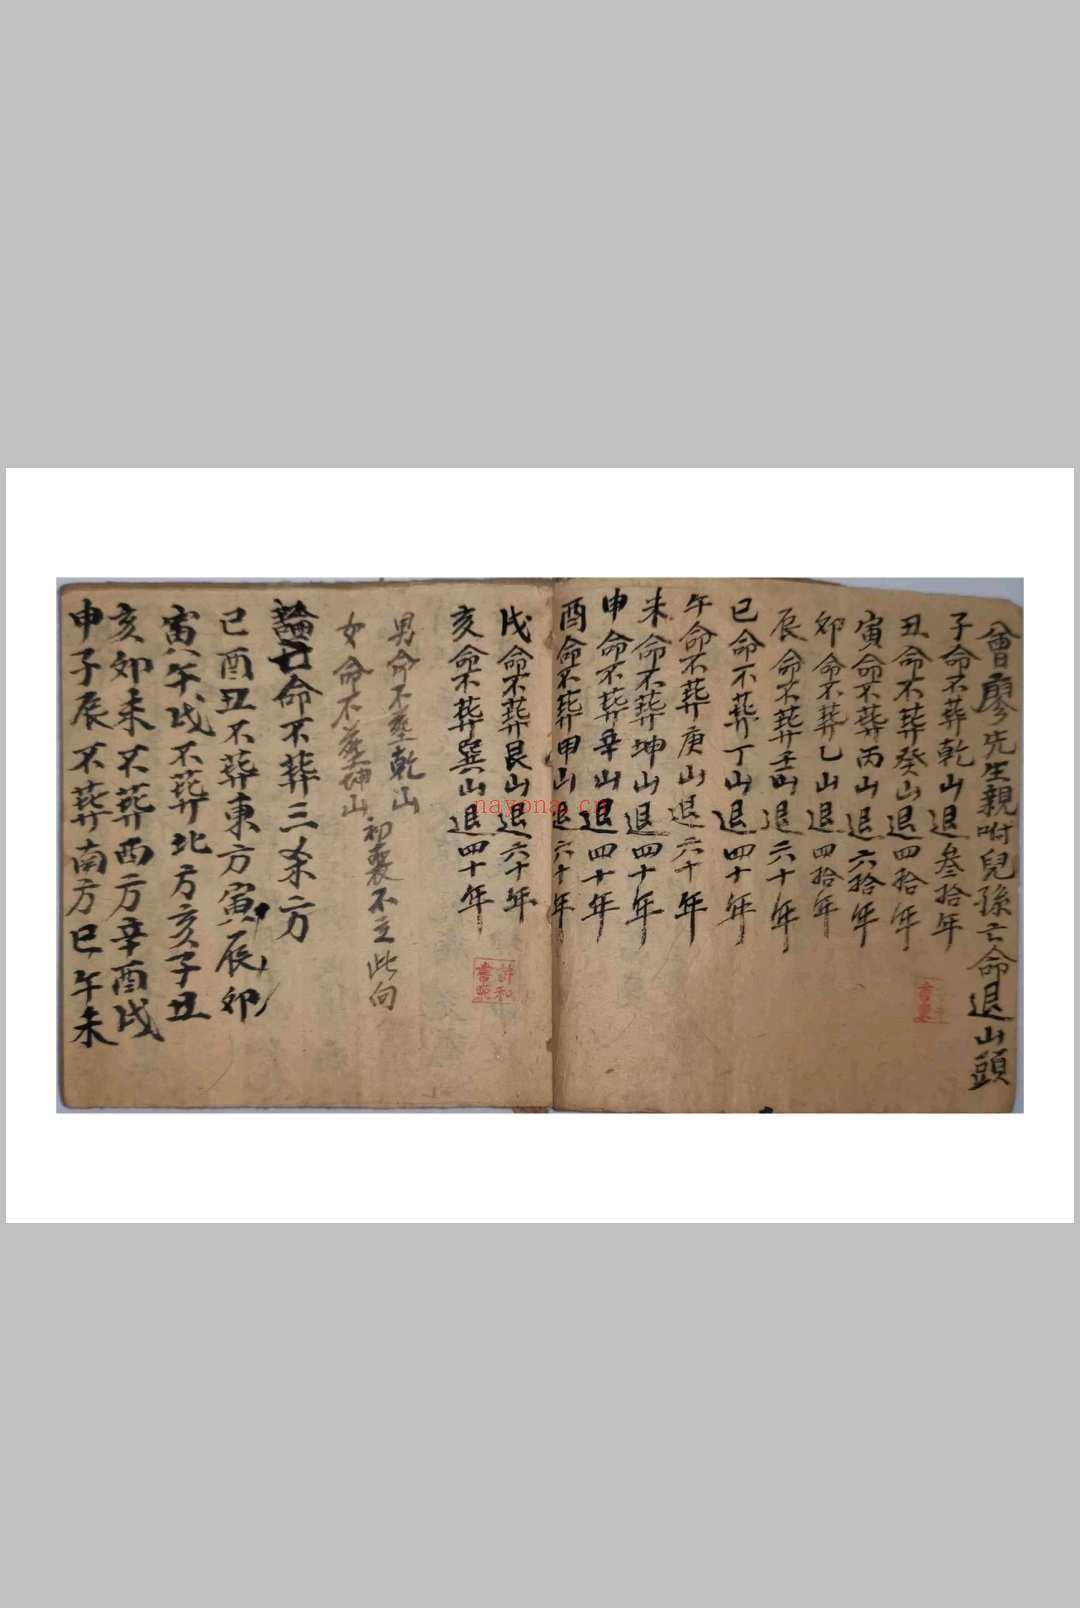 曾廖先生親咐兒孫亡命退山頭
子命不葬乾山退叁拾年
丑命不葬癸山退四拾年
寅命不葬丙山退六拾年
卯命不葬乙山退四拾年
辰命不葬壬山退六十年
巳命不葬丁山退四十年
午命不葬庚山退六十年
未命不葬坤山退四十年
申命不葬辛山退四十年
酉命不葬甲山退六十年
戌命不葬艮山退六十年
亥命不葬巽山退四十年
男命不塟乾山
女命不塟坤山
初喪不立此向
論亡命不葬三杀方
巳酉丑不葬東方寅辰卯
寅午戌不葬北方亥子丑
亥卯未不葬西方辛酉戌
申子辰不葬南方巳午未
nayona.cn